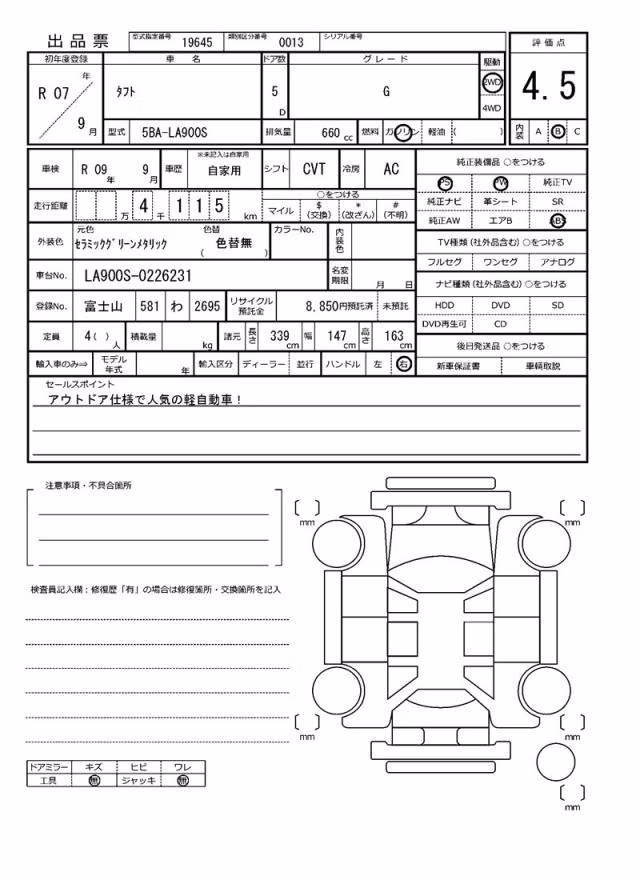 出品票 型式指定番号 19645 類別区分番号 0013 シリアル番号
初年度登録 車名 ドア数 グレード 駆動 評価点
R 07 年 9 月 タフト 5 D G 2WD 4WD 4.5
型式 5BA-LA900S 排気量 660 cc 燃料 ガソリン 軽油 ( ) 内装 A B C
車検 R 09 年 9 月 車歴 ※未記入は自家用 自家用 シフト CVT 冷房 AC 純正装備品 ○をつける
PS PW 純正TV
走行距離 万 4 千 1 1 5 km ○をつける 純正ナビ 革シート SR
マイル $(交換) *(改ざん) #(不明) 純正AW エアB ABS
外装色 元色 セラミックグリーンメタリック 色替 ( 色替無 ) カラーNo. 内装色 TV種類 (社外品含む) ○をつける
フルセグ ワンセグ アナログ
車台No. LA900S-0226231 名変期限 月 日 ナビ種類 (社外品含む) ○をつける
登録No. 富士山 581 わ 2695 リサイクル預託金 8,850円預託済 未預託 HDD DVD SD
DVD再生可 CD
定員 4 ( ) 人 積載量 kg 諸元 長さ 339 cm 幅 147 cm 高さ 163 cm 後日発送品 ○をつける
輸入車のみ⇒ モデル年式 年 輸入区分 ディーラー 並行 ハンドル 左 右 新車保証書 車輌取説
セールスポイント
アウトドア仕様で人気の軽自動車!
注意事項・不具合箇所
mm mm
検査員記入欄:修復歴「有」の場合は修復箇所・交換箇所を記入
mm mm
ドアミラー キズ ヒビ ワレ
工具 無 ジャッキ 無
mm